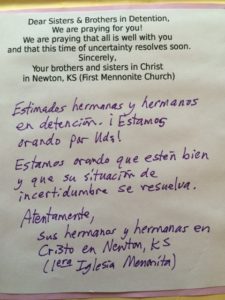 Dear Sisters & Brothers in Detention,
We are praying for you!
We are praying that all is well with you
and that this time of uncertainty resolves soon.
Sincerely,
Your brothers and sisters in Christ
in Newton, KS (First Mennonite Church)
Estimados hermanas y hermanos
en detención. ¡Estamos
orando por Uds!
Estamos orando que estén bien
y que su situación de
incertidumbre se resuelva.
Atentamente,
Sus hermanos y hermanas en
Cristo en Newton, KS
(1era Iglesia Menonita)